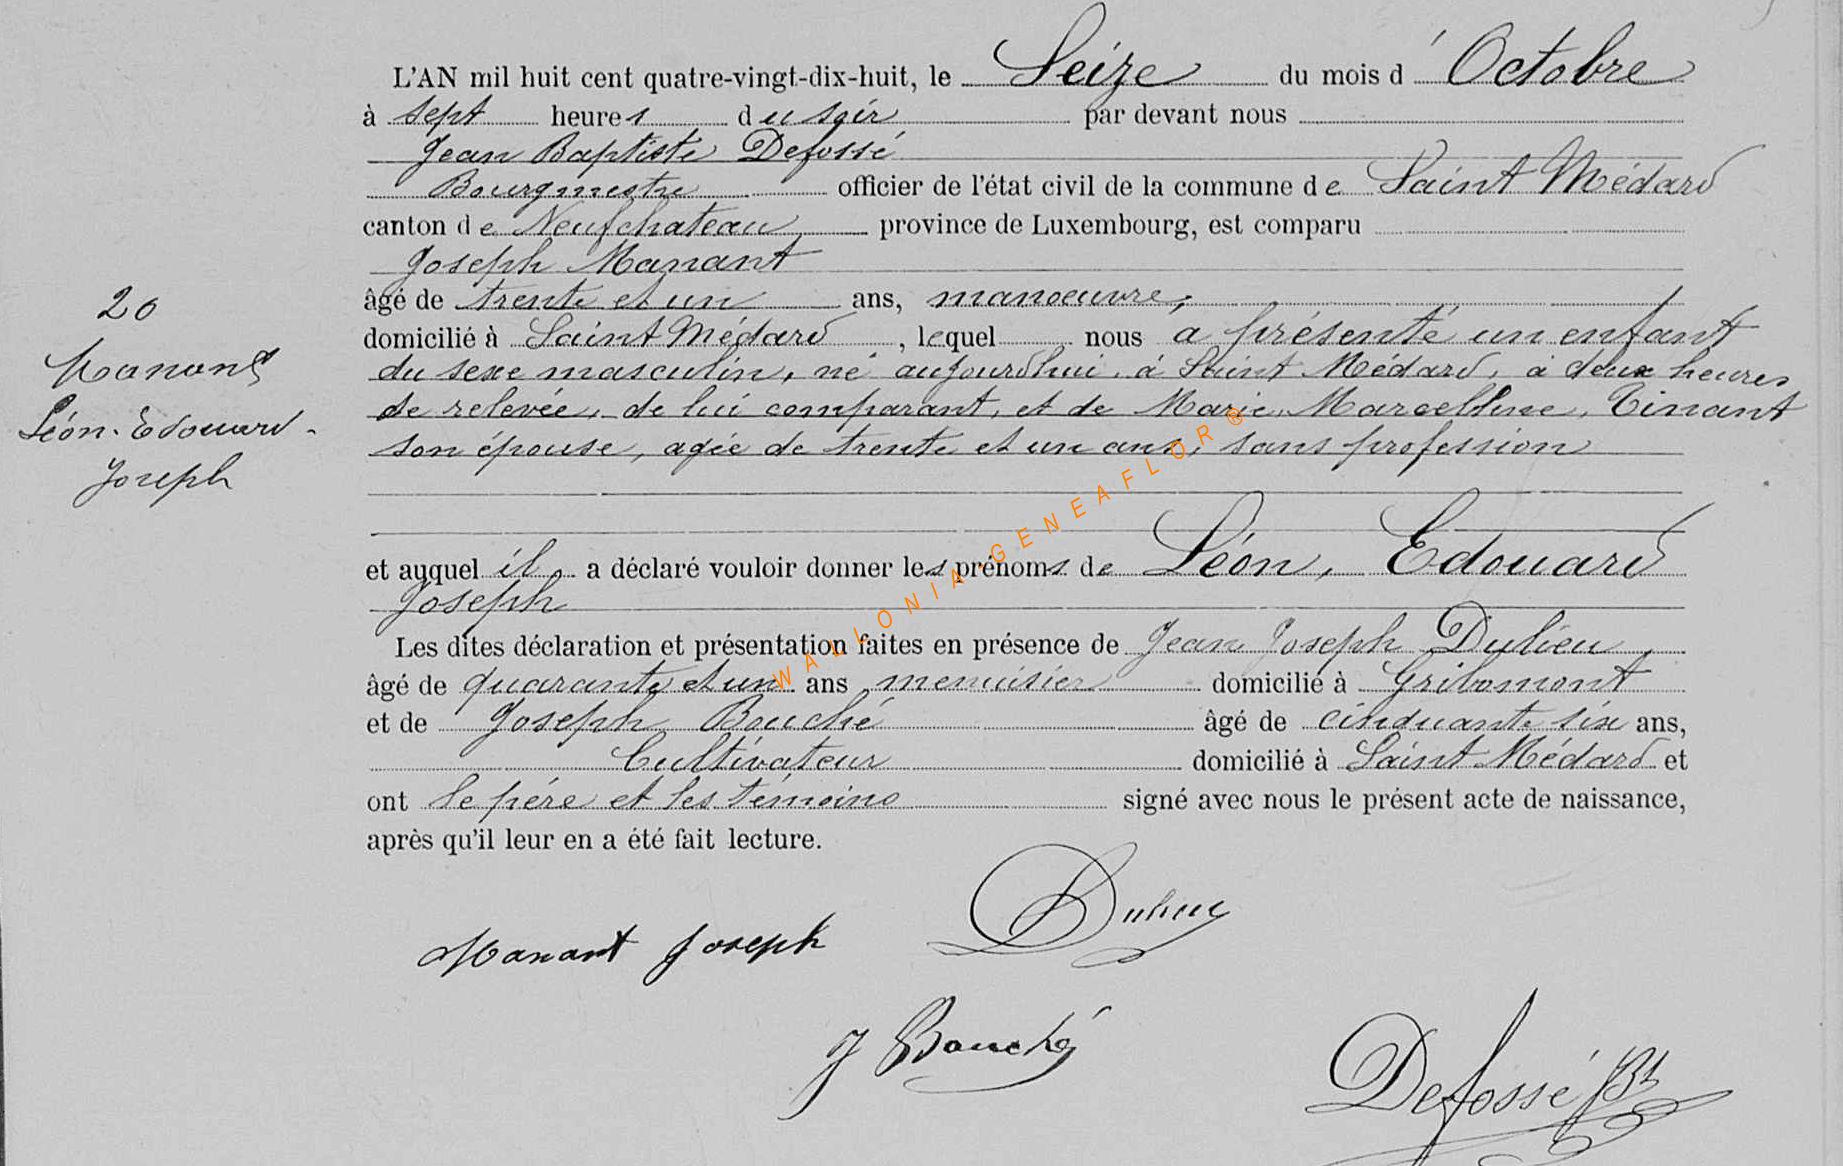 L'AN mil huit cent quatre-vingt-dix-huit, le Seize du mois d'Octobre
à sept heures du soir par devant nous
Jean Baptiste Defossé
Bourgmestre officier de l'état civil de la commune de Saint Médard
canton de Neufchateau province de Luxembourg, est comparu
Joseph Manant
âgé de trente et un ans, manoeuvre,
domicilié à Saint Médard, lequel nous a présenté un enfant
du sexe masculin, né aujourdhui à Saint Médard, à deux heures
de relevée, de lui comparant, et de Marie Marcelline, Tinant
son épouse, agée de trente et un ans, sans profession
et auquel il a déclaré vouloir donner les prénoms de Léon, Edouard
Joseph
Les dites déclaration et présentation faites en présence de Jean Joseph Dulieu,
âgé de quarante et un ans menuisier domicilié à Gribomont
et de Joseph Bouché âgé de cinquante six ans,
Cultivateur domicilié à Saint Médard et
ont le père et les témoins signé avec nous le présent acte de naissance,
après qu'il leur en a été fait lecture.
20
Manant
Léon-Edouard-
Joseph
Manant Joseph
Dulieu
J Bouché
Defossé JBt
WALLONIA-GENEAFLOR®